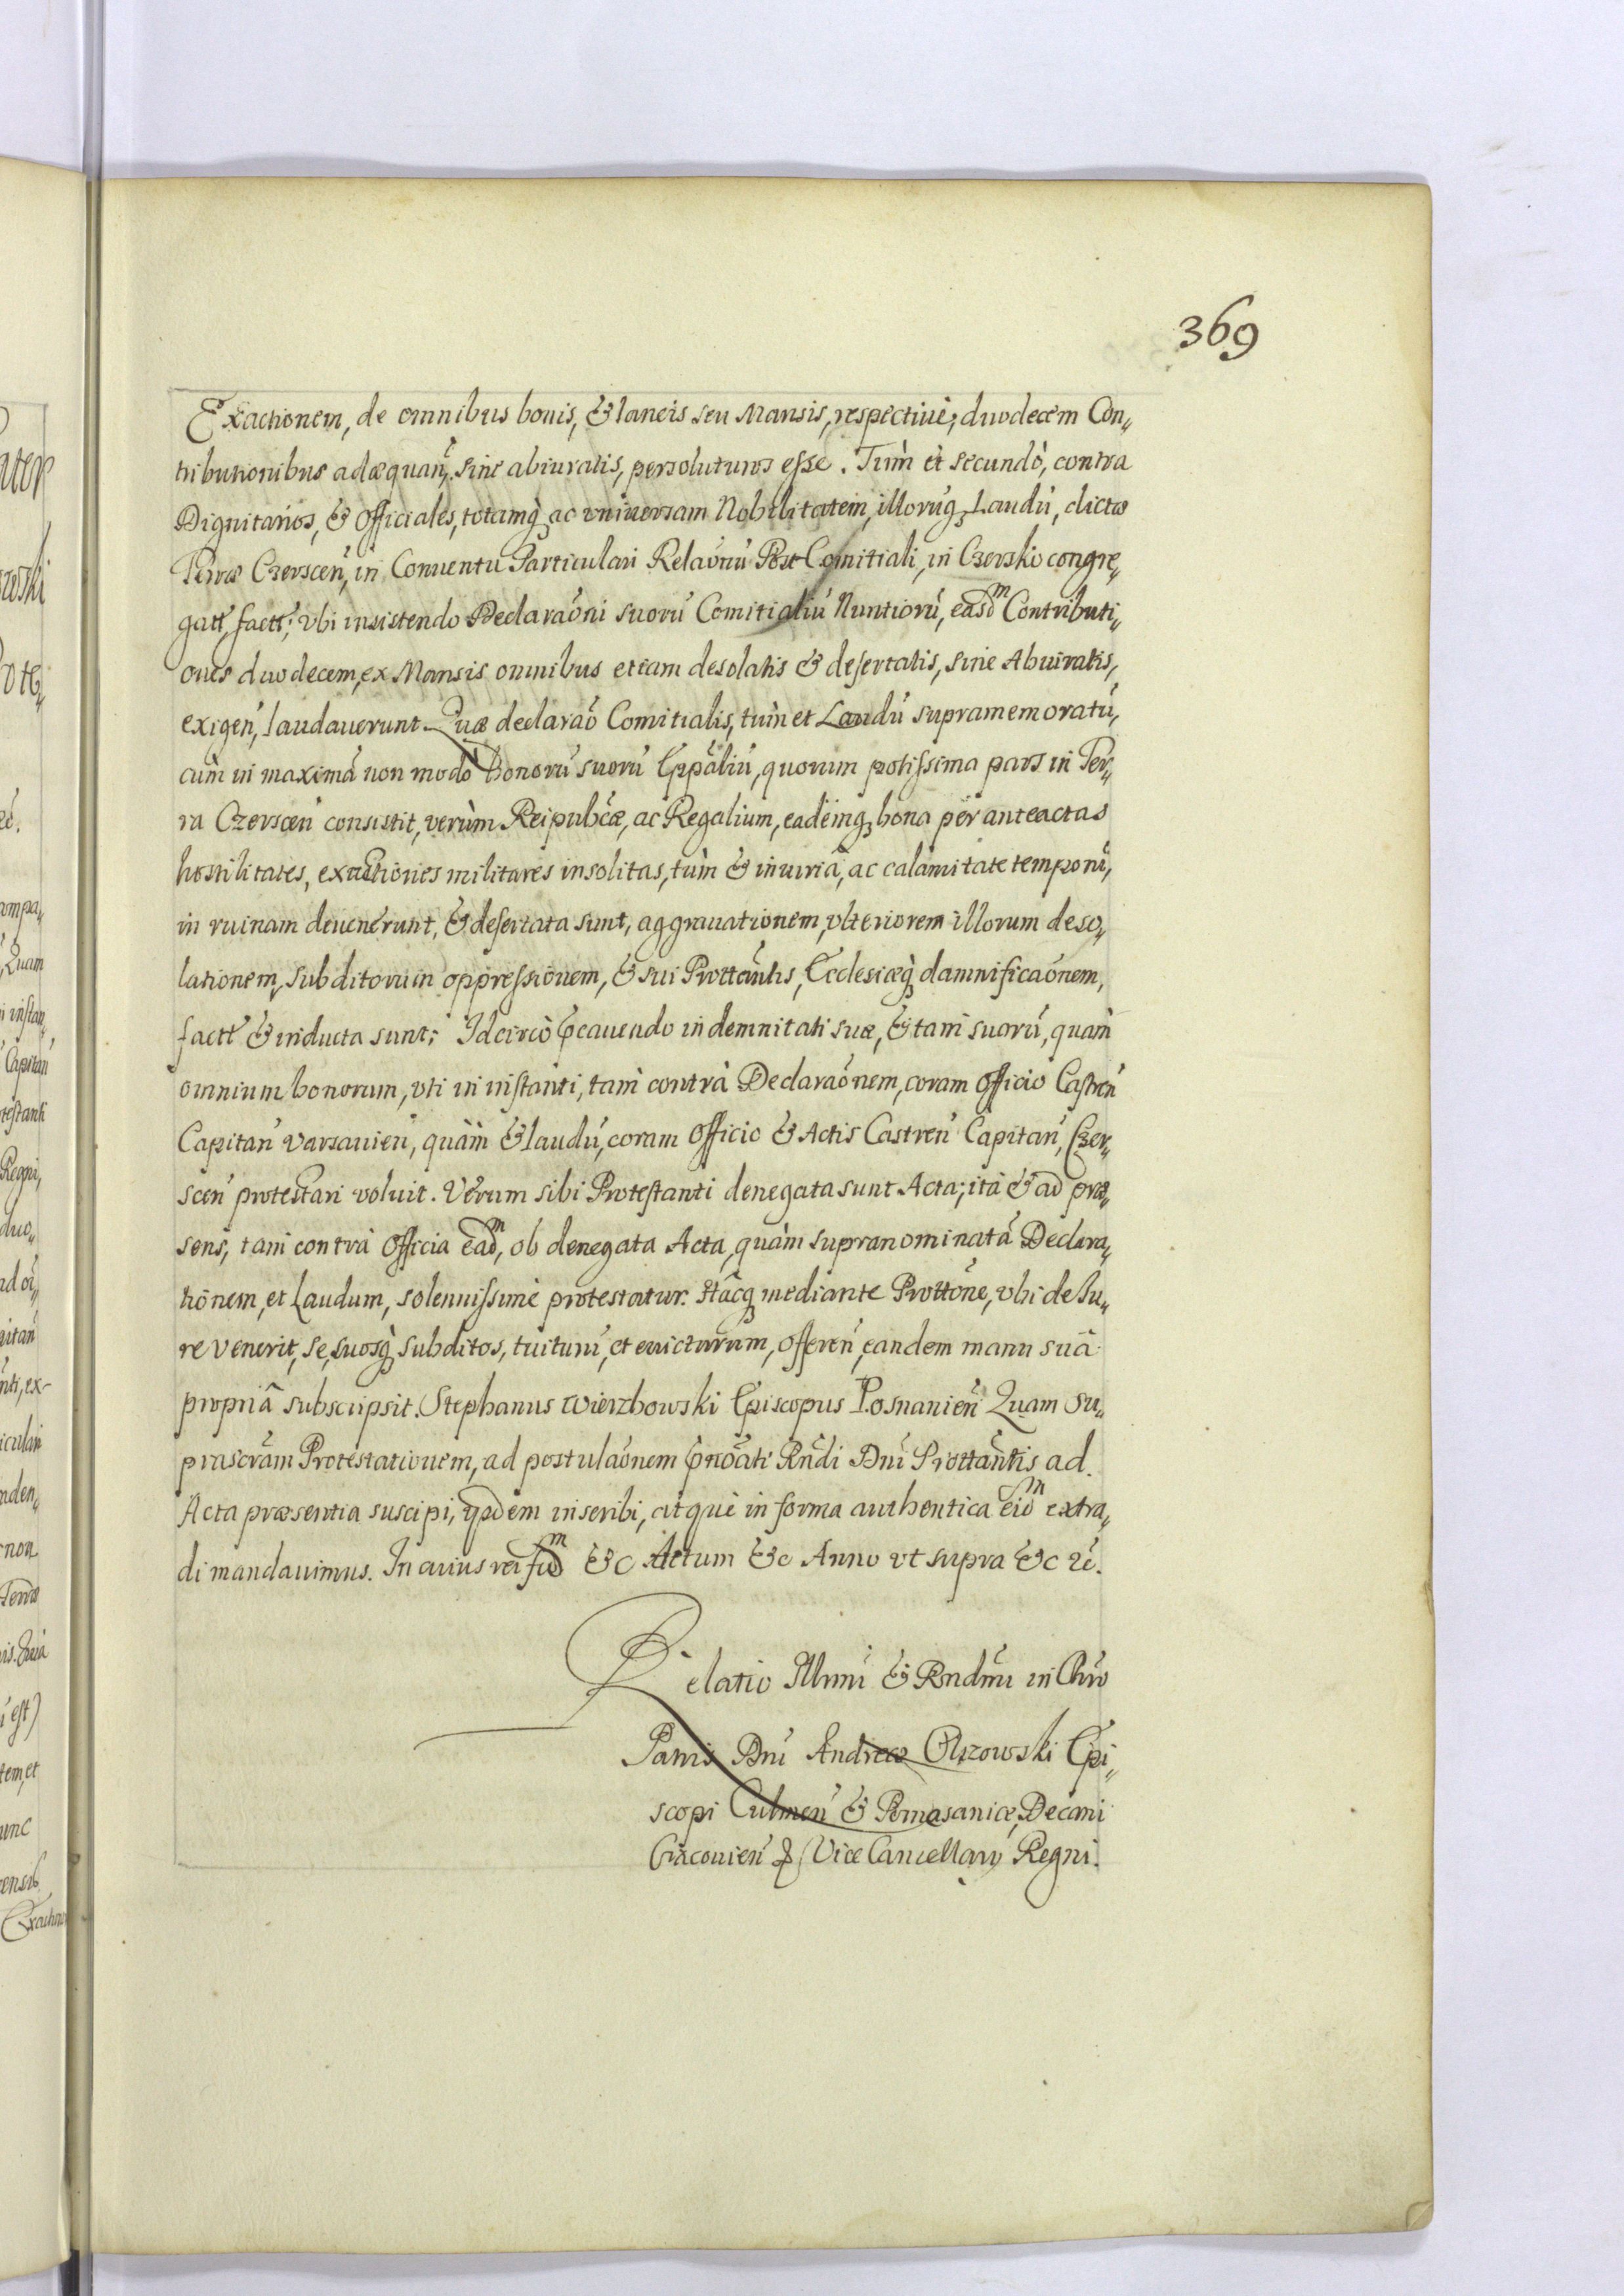 369
Exactionem, de omnibus bonis, & laneis seu Mansis, respectiuè, duodecem Con„
tributionibus adæquan̄, sine abiuratis, persoluturos esse. Tùm et secundò, contra
Dignitarios, & Officiales, totamq; ac vniuersam Nobilitatem, illorūq; Laudū, dictæ
Terræ Czerscen̄, in Conuentu Particulari Relaōnū Post Comitiali, in Czersko congre„
gatt, factt; vbi insistendo Declaraōni suorū Comitialiū Nuntiorū, easdm Contributi„
ones duodecem, ex Mansis omnibus etiam desolatis & desertatis, sine Abiuratis,
exigen̄, laudauerunt. Quæ declaraō Comitialis, tùm et Laudū supramemoratū,
cùm in maximā non modo bonorū suorū Eppāliū, quorum potissima pars in Ter„
ra Czerscen̄ consistit, verùm Reipubcæ, ac Regalium, eademq; bona per anteactas
hostilitates, exactiones militares insolitas, tùm & iniuriā, ac calamitate temporū,
in ruinam deuenerunt, & desertata sunt, aggrauationem, vlteriorem illorum deso„
lationem, subditorum oppressionem, & sui Prottāntis, Ecclesiæq; damnificaōnem,
factt & inducta sunt; Idcircò p̄cauendo indemnitati suæ, & tam suorū, quàm
omnium bonorum, vti in instanti, tam contrà Declaraōnem, coram Officio Castren̄
Capitan̄ Varsauien̄, quàm & laudū, coram Officio & Actis Castren̄ Capitan̄, Czer„
scen̄ protestari voluit. Verum sibi Protestanti denegata sunt Acta; ità & ad præ„
sens, tam contrà Officia eadm, ob denegata Acta, quàm supranominatā Declara„
tionem, et Laudum, solennissimè protestatur. Hācq; mediante Prottōne, vbi de Iu„
re venerit, se, suosq; subditos, tuiturū, et euicturum, offeren̄, eandem manu suâ
propriâ subscripsit. Stephanus Wierzbowski Episcopus Posnanien̄ Quam su„
prascrām Protestationem, ad postulaōnem p̄noāti Rn̄di Dnī Prottāntis ad
Acta præsentia suscipi, ijsdem inscribi, atque in forma authentica eidm extra„
di mandauimus. In cuius rei fidm &c Actum &c Anno vt supra &c rē.
Relatio Illmī & Rndmī in Chrō
Patris Dnī Andreæ Olszowski Epi„
scopi Culmen̄ & Pomesaniæ, Decani
Cracouien̄ & Vice Cancellarij Regni.